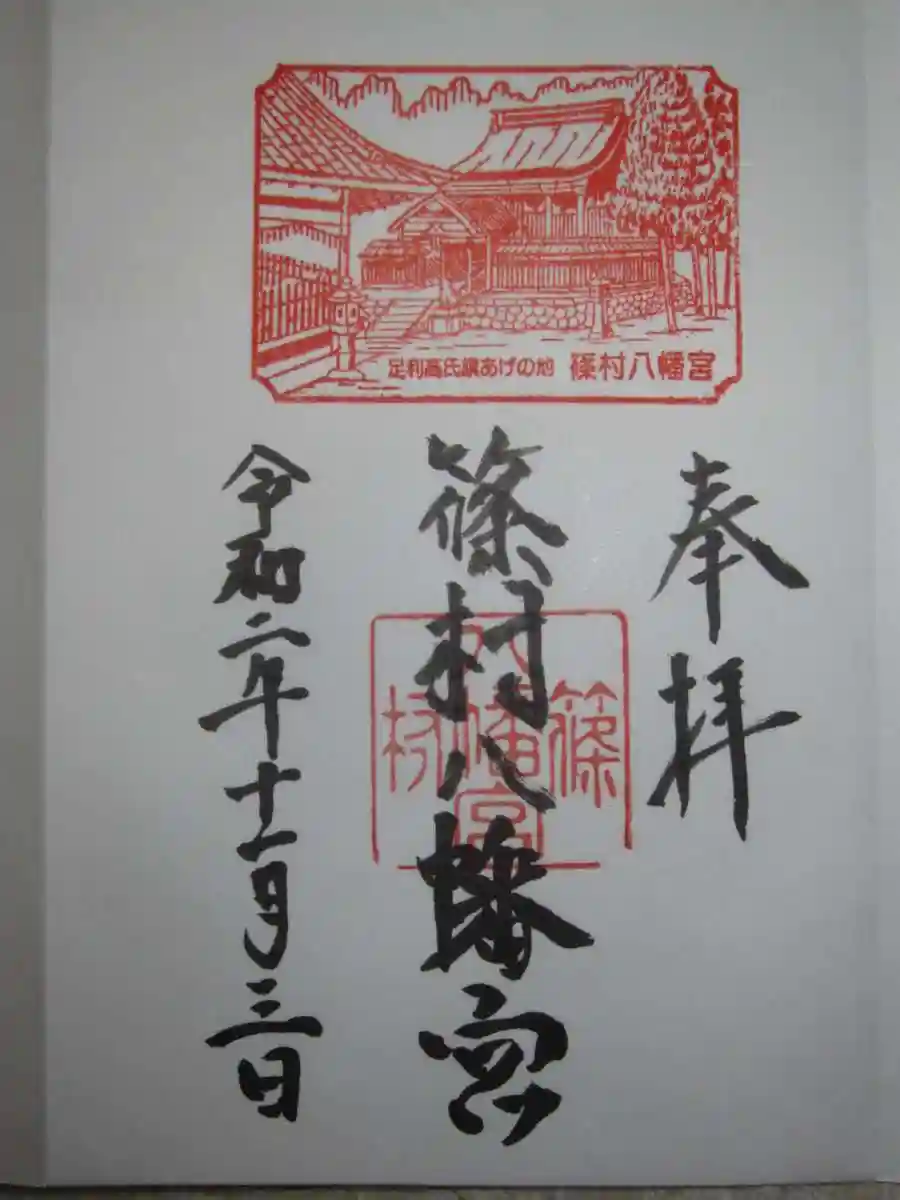 足利高氏旗あげの地 篠村八幡宮
奉拝
篠村八幡宮
篠村八幡宮
令和二年十一月三日